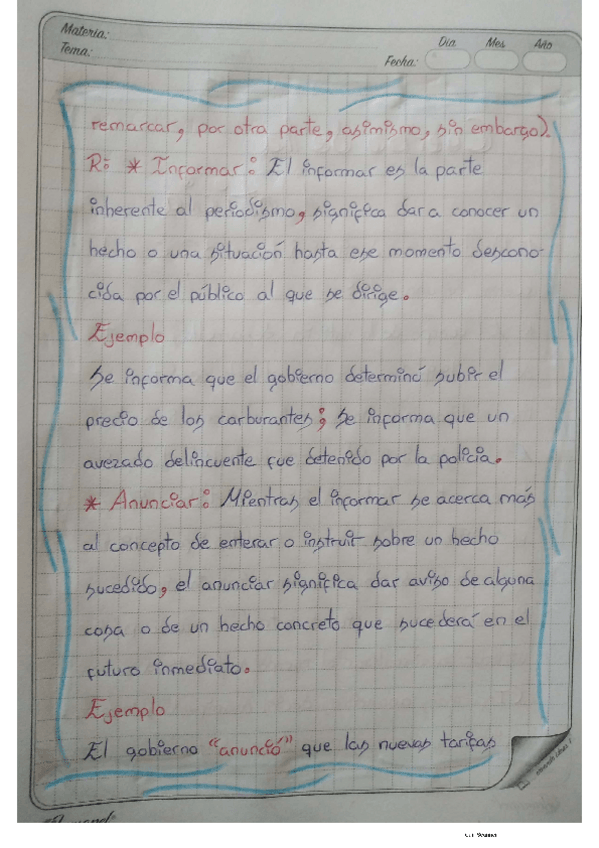 Materia:
Tema:
Fecha:
Dia Mes Año
remarcar, por otra parte, asimismo, sin embargo).
R: * Informar: El informar es la parte
inherente al periodismo, significa dar a conocer un
hecho o una situación hasta ese momento descono-
cida por el público al que se dirige.
Ejemplo
Se informa que el gobierno determinó subir el
precio de los carburantes; Se informa que un
avezado delincuente fue detenido por la policia.
* Anunciar: Mientras el informar se acerca más
al concepto de enterar o instruir sobre un hecho
sucedido, el anunciar significa dar aviso de alguna
cosa o de un hecho concreto que sucederá en el
futuro inmediato.
Ejemplo
El gobierno "anunció" que las nuevas tarifas